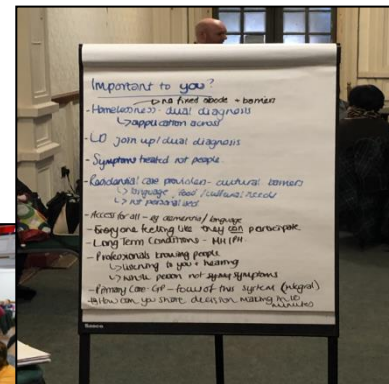 Important to you?
↳ no fixed abode + barriers
- Homelessness - dual diagnosis
↳ application across
- LD join up / dual diagnosis
- Symptoms treated not people
- Residential care providers - cultural barriers
↳ language, food / cultural needs
↳ not personalised
- Access for all - eg dementia / language
- Everyone feeling like they can participate
- Long Term Conditions - MH / PH.
- Professionals knowing people
↳ listening to you + hearing
↳ whole person not symptoms
- Primary Care - GP - focus of this system (integral)
How can you share decision making in 10
minutes